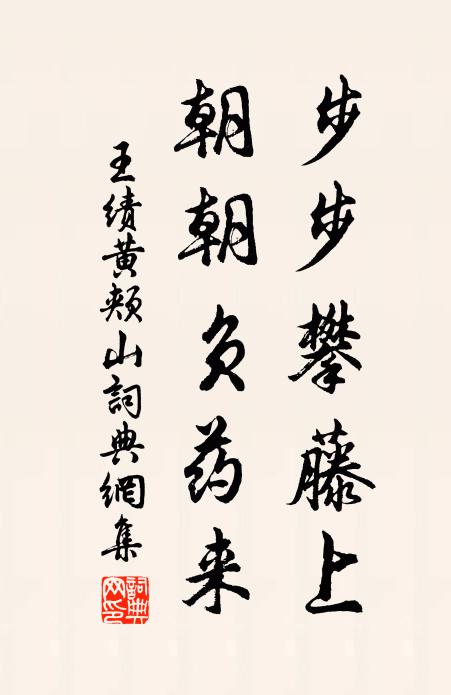 步步攀藤上
朝朝负药来
王绩黄颊山詞典網集
詞典网印